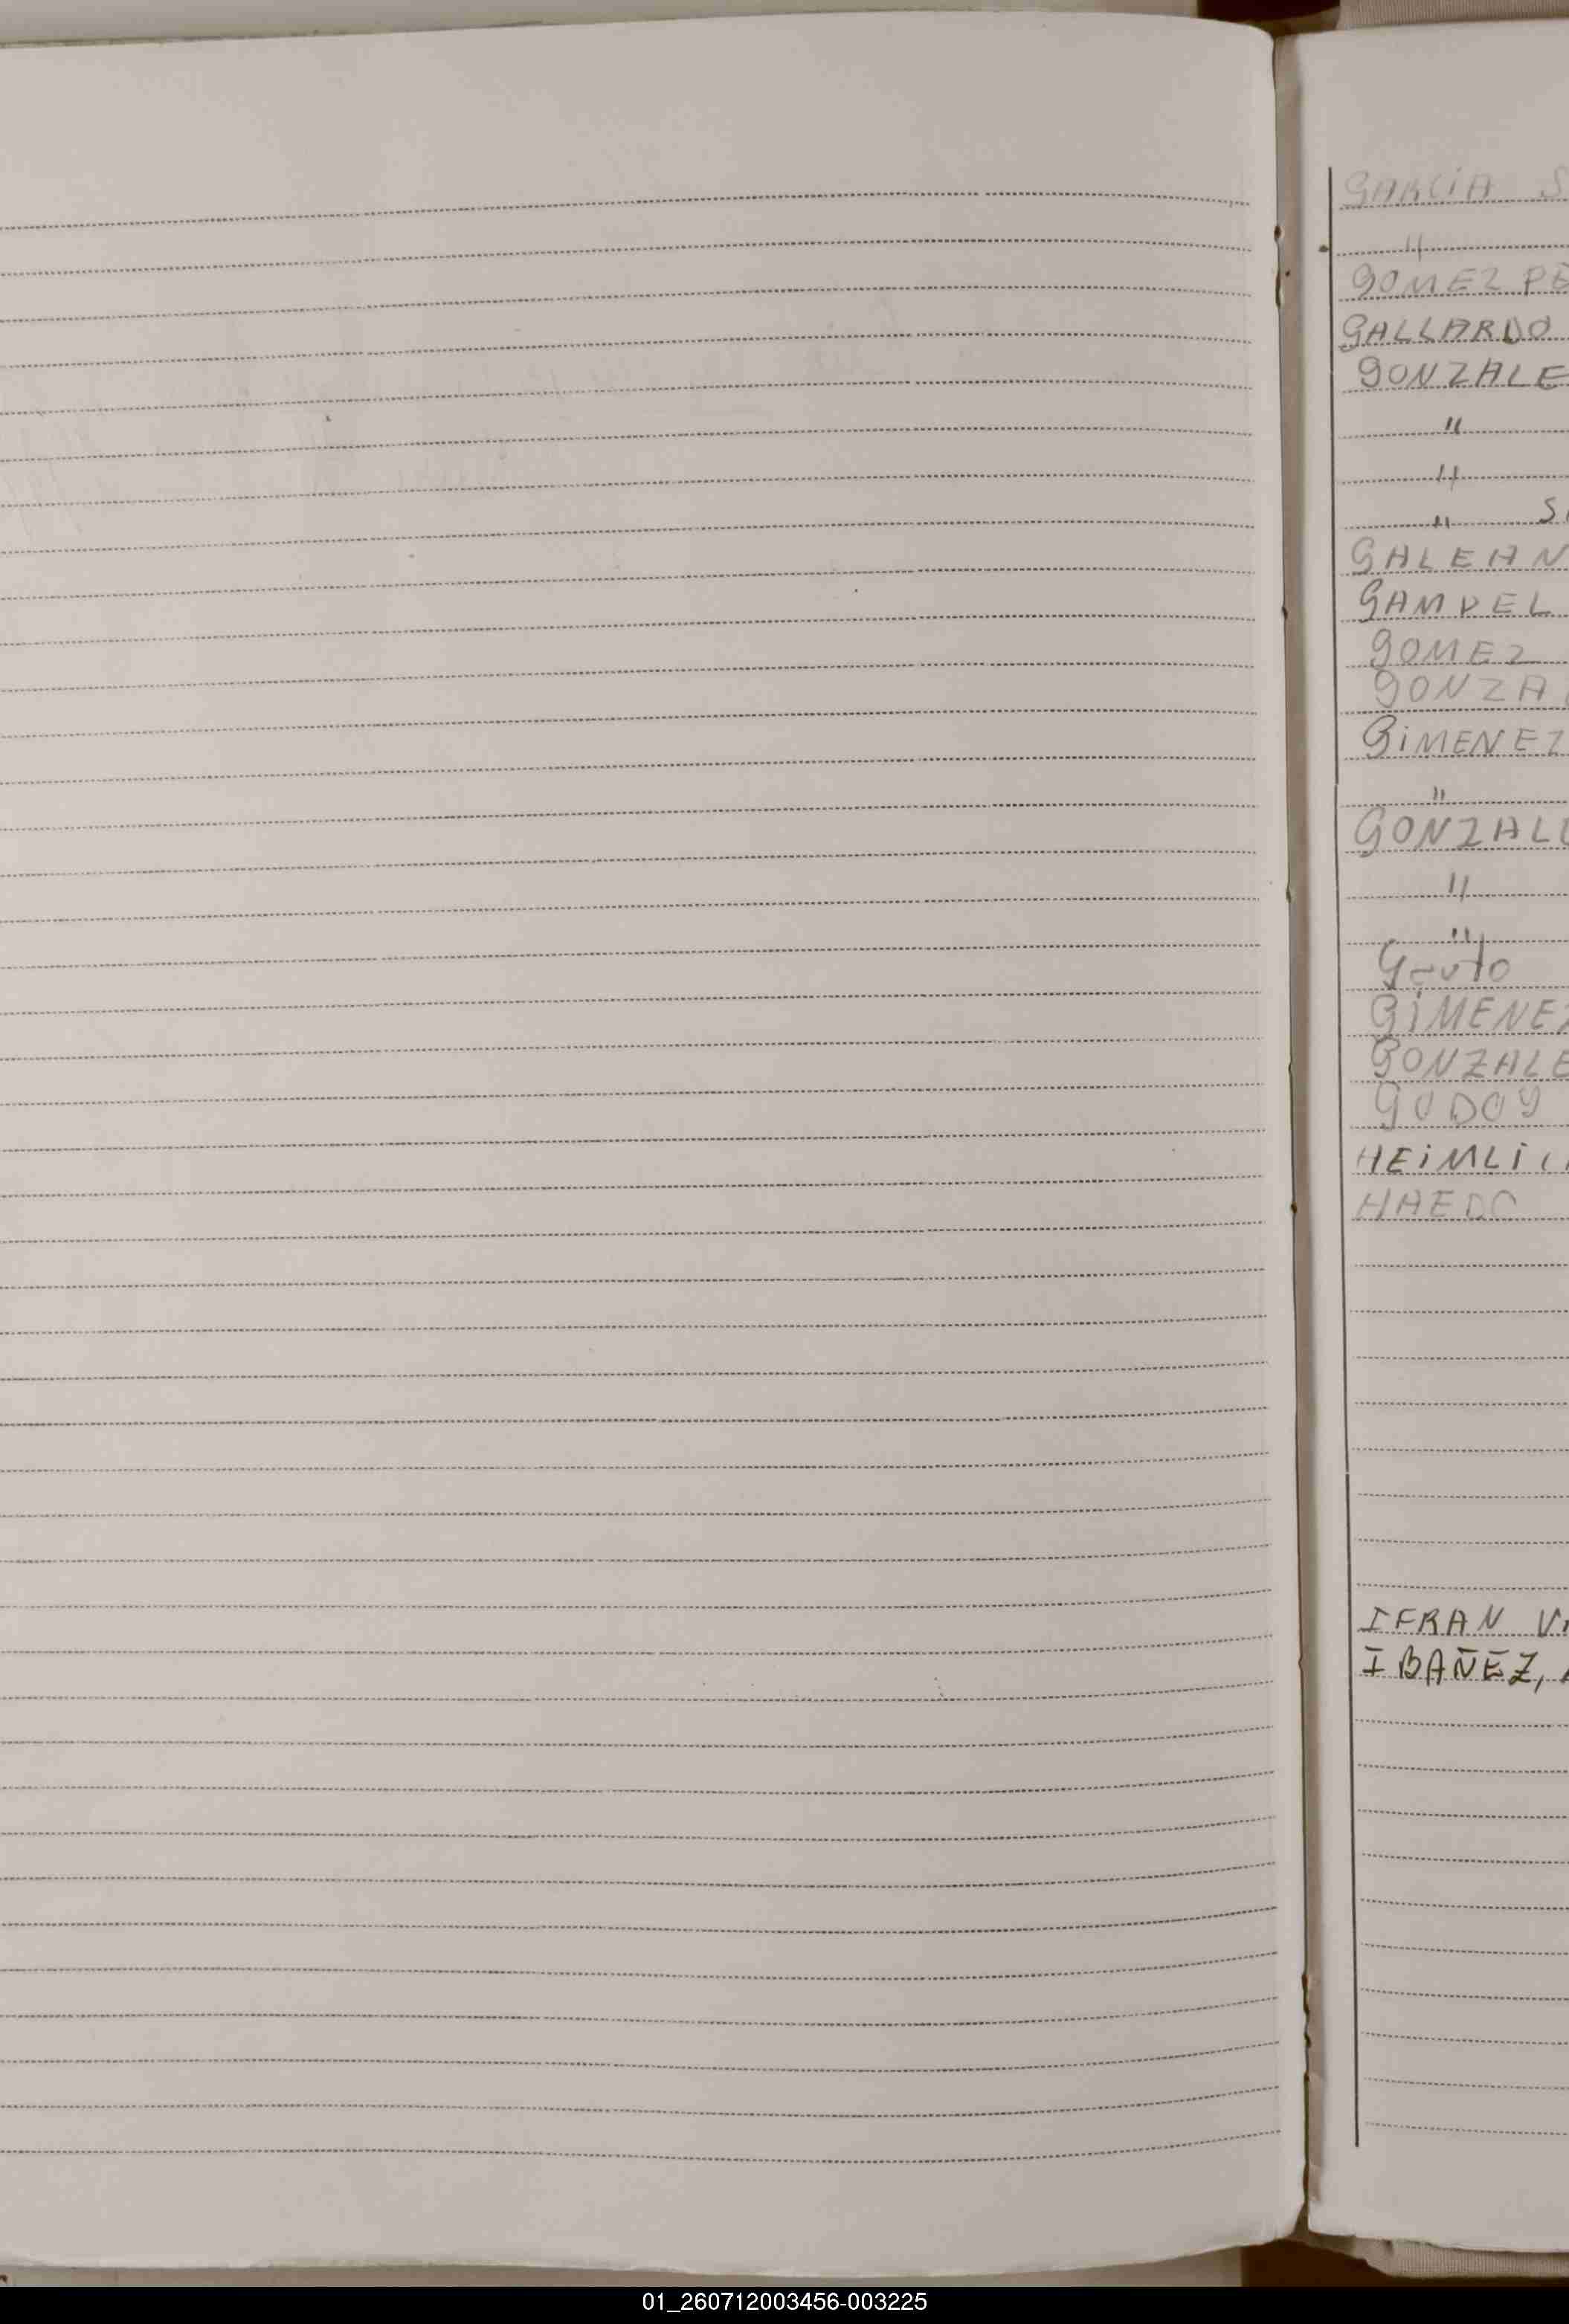 GARCIA S
"
GOMEZ PE
GALLARDO
GONZALE
"
"
" S
GALEAN
GAMPEL
GOMEZ
GONZA
GIMENEZ
"
GONZALE
"
"
GIMENEZ
GONZALE
GODOY
HEIMLIC
HAEDO
IFRAN V
IBAÑEZ,
01_260712003456-003225